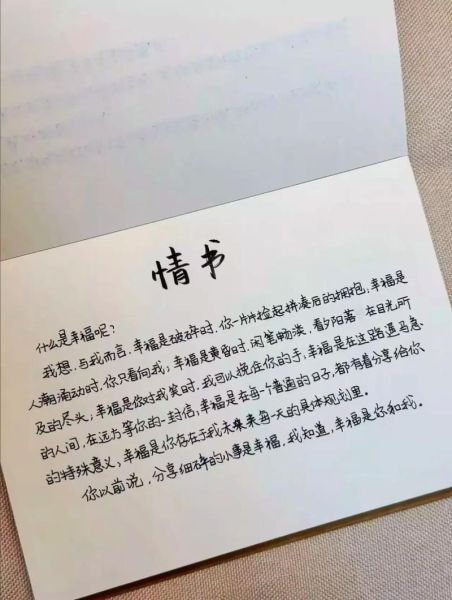 情书
什么是幸福呢？
我想，与我而言，幸福是破碎时，你一片片捡起拼凑后的拥抱，幸福是
人潮涌动时，你只看向我；幸福是黄昏时，闲笔畅谈，看夕阳落在目光所
及的尽头；幸福是你对我笑时，我可以挽住你的手，幸福是在这路遥马急
的人间，在远方等你的一封信，幸福是在每个普通的日子，都有着分享给你
的特殊意义，幸福是你存在于我未来来每一天的具体规划里。
你以前说，分享细碎的小事是幸福，我知道，幸福是你和我。